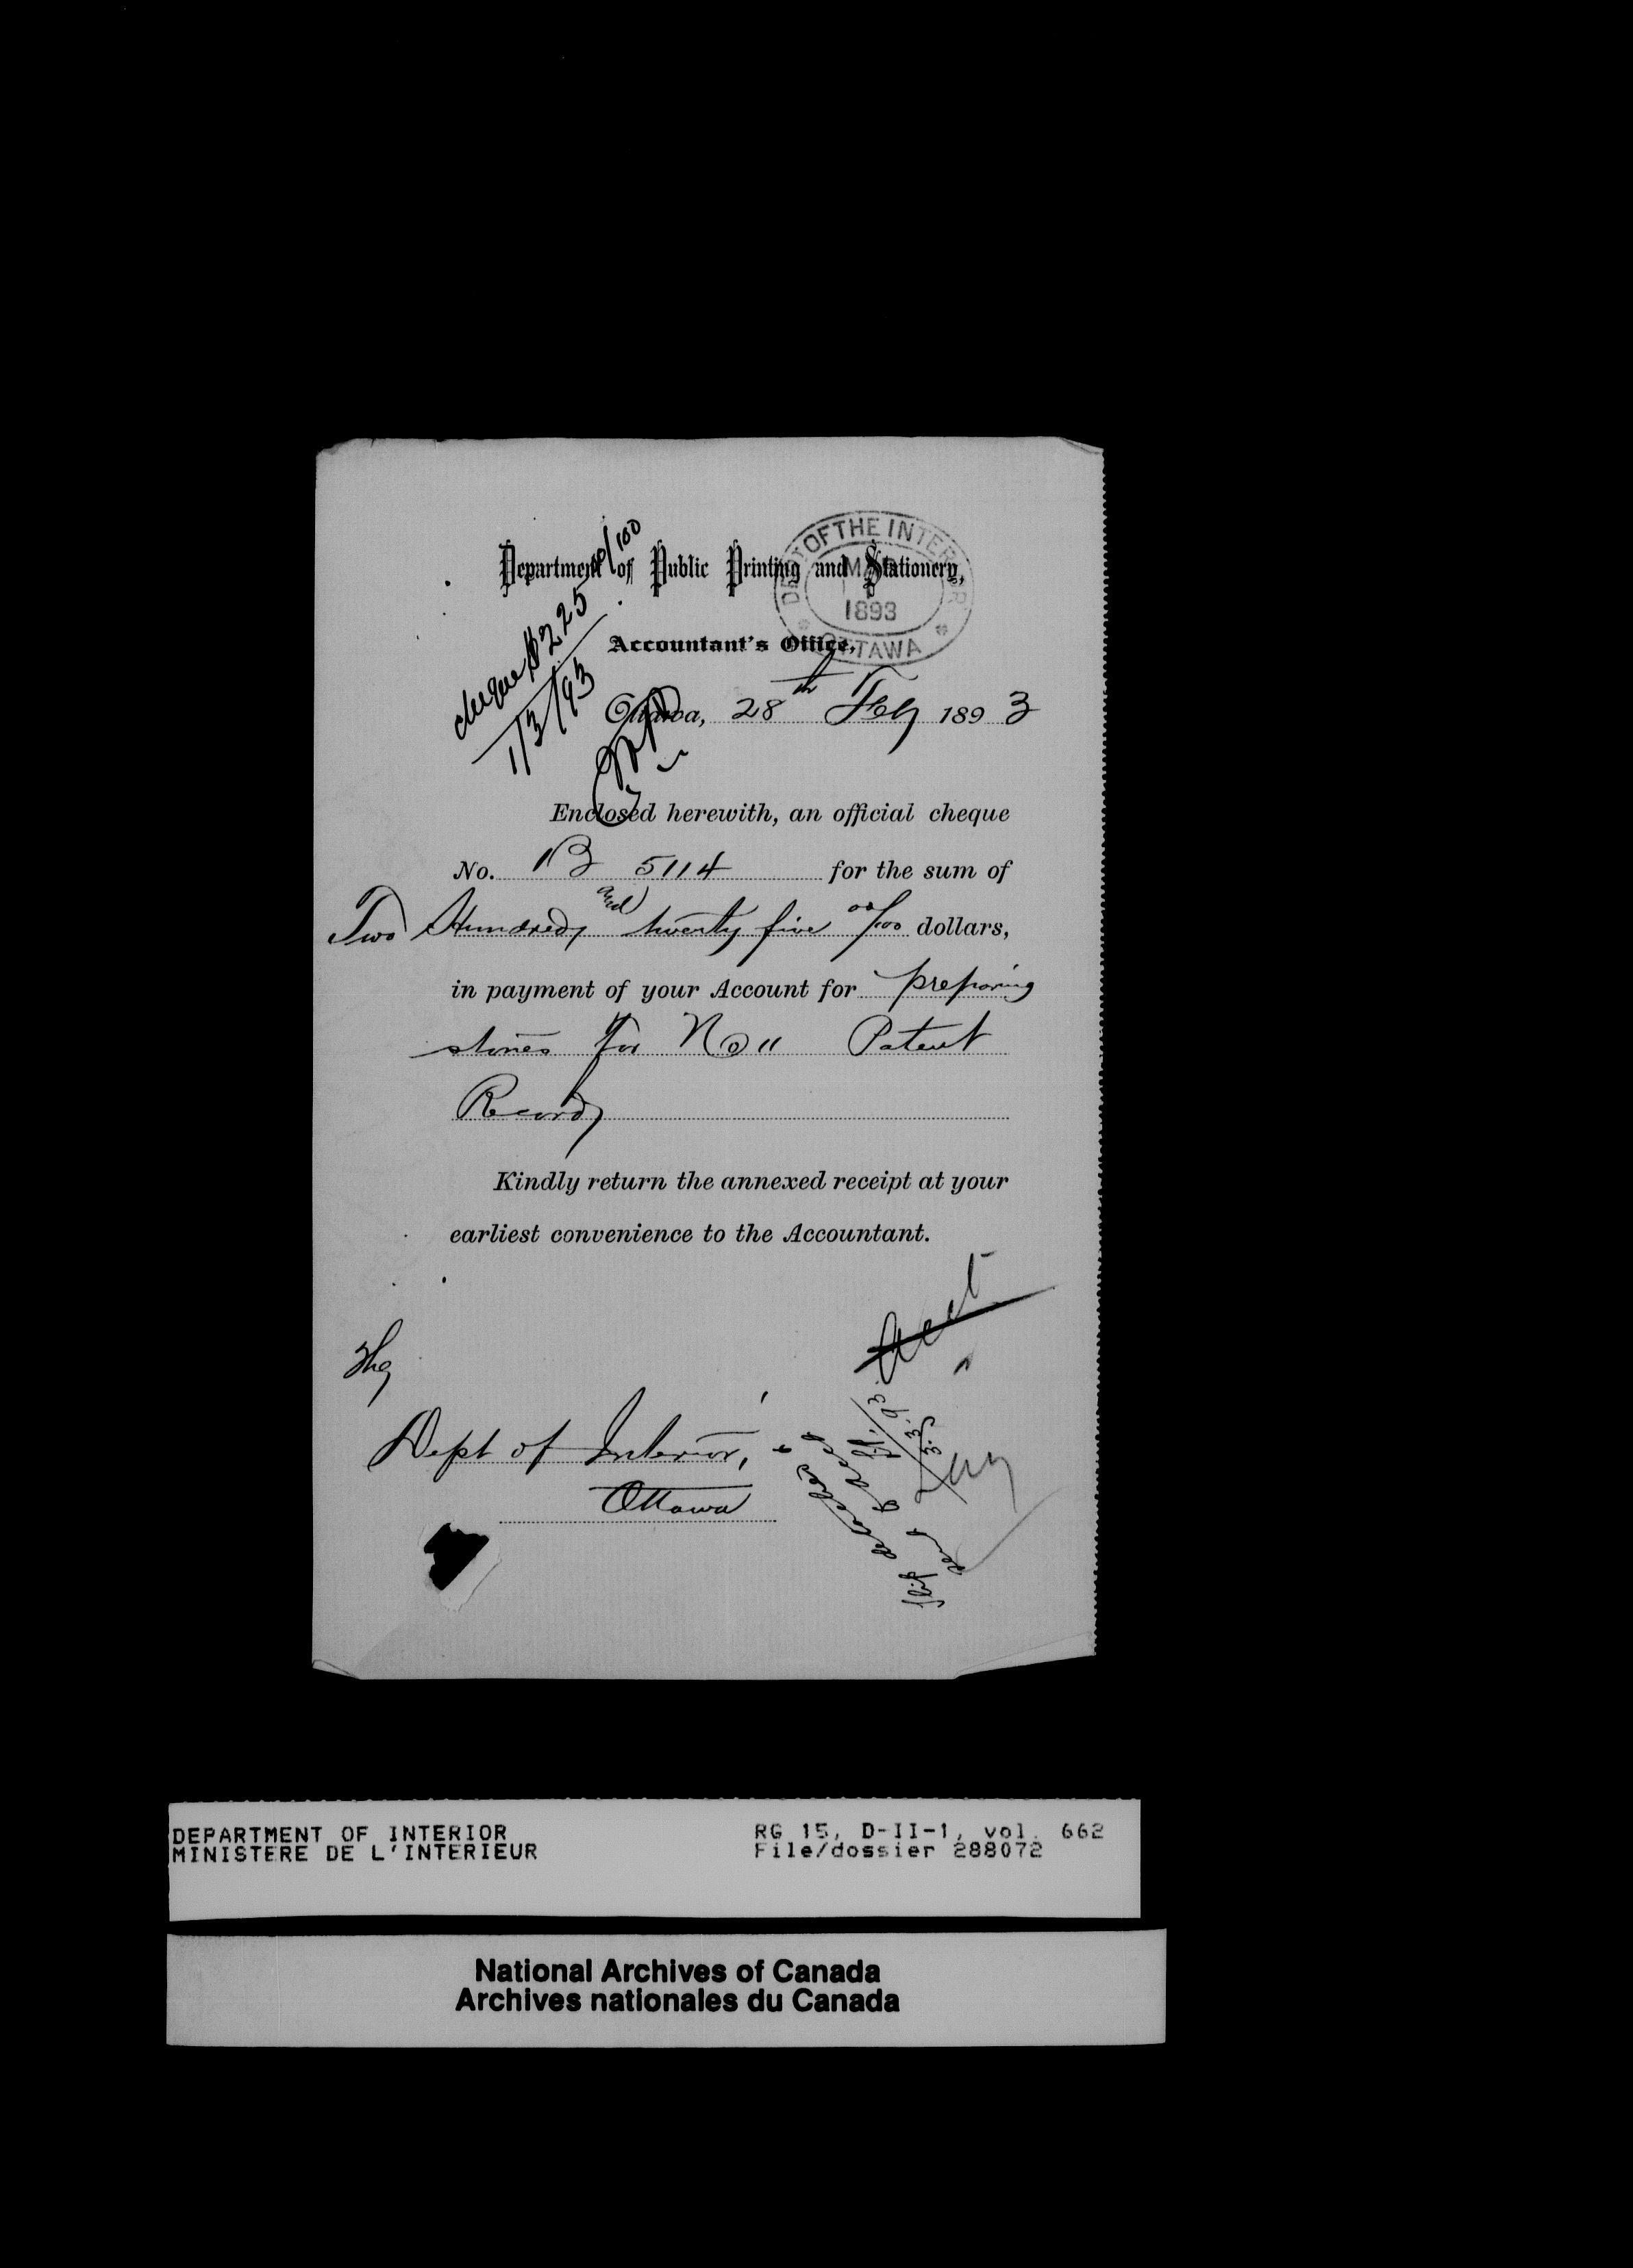 Department of Public Printing and Stationery,
DEPT OF THE INTERIOR
MAR
1
1893
OTTAWA
Accountant's Office,
cheque $225 00/100
1/3/93
Ottawa, 28th Feby 1893
Enclosed herewith, an official cheque
No. B 5114 for the sum of
Two Hundred and twenty five 00/100 dollars,
in payment of your Account for preparing
stones for No 11 Patent
Record
Kindly return the annexed receipt at your
earliest convenience to the Accountant.
Acct
The
Dept of Interior,
Ottawa
Slip detached &
sent to Acct
3.3.93
DEPARTMENT OF INTERIOR
MINISTERE DE L'INTERIEUR
RG 15, D-II-1, vol. 662
File/dossier 288072
National Archives of Canada
Archives nationales du Canada